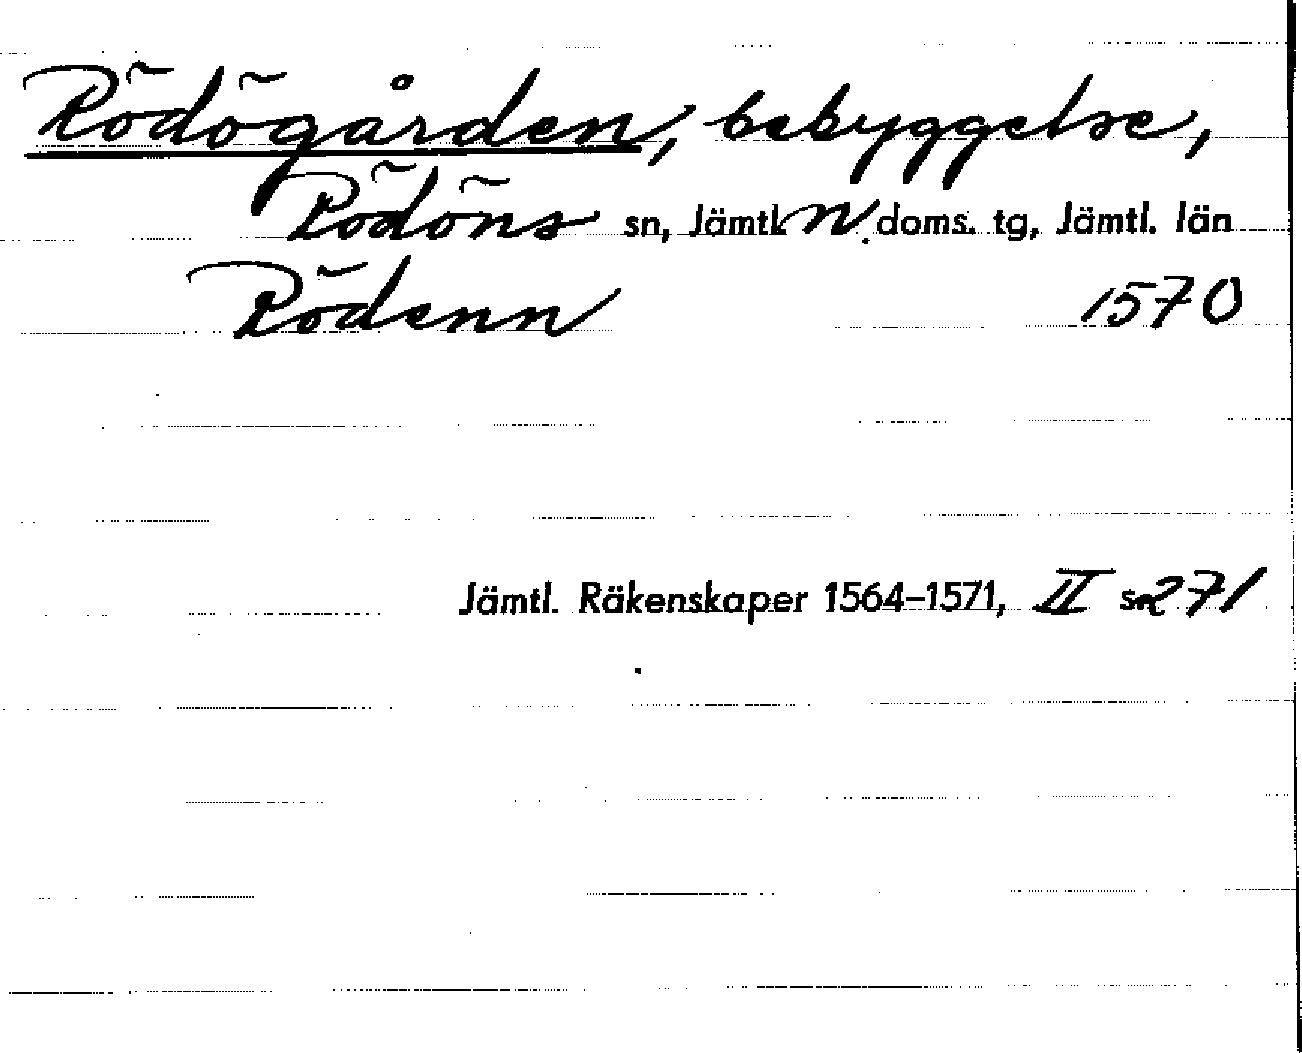 Rödögården, bebyggelse,
Rödöns sn, Jämtl. N. doms. tg, Jämtl. län
Rödenn 1570
Jämtl. Räkenskaper 1564–1571, II s. 271